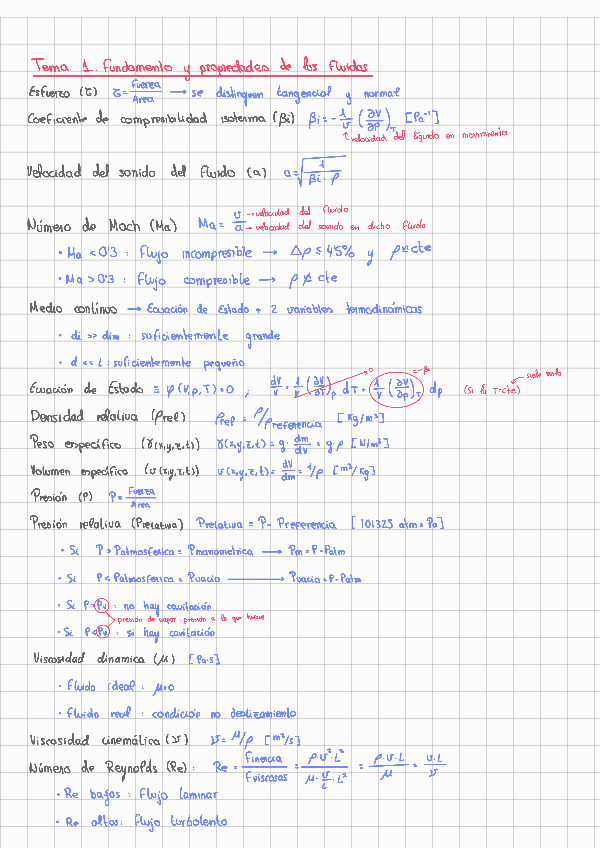 Tema 1. Fundamento y propiedades de los Fluidos
Esfuerzo (τ) τ = Fuerza/Area → se distinguen tangencial y normal
Coeficiente de compresibilidad isoterma (βi) βi = - 1/v (∂V/∂p)T [Pa⁻¹]
velocidad del líquido en movimiento
Velocidad del sonido del fluido (a) a = √(1/(βi · ρ))
Número de Mach (Ma) Ma = v/a → velocidad del fluido
→ velocidad del sonido en dicho fluido
· Ma < 0'3 : Flujo incompresible → Δρ ≤ 45% y ρ ≈ cte
· Ma > 0'3 : Flujo compresible → ρ ≠ cte
Medio continuo → Ecuación de Estado + 2 variables termodinámicas
· di >> dim : suficientemente grande
· d << L : suficientemente pequeño
Ecuación de Estado ≡ φ(V,p,T) = 0 ; dV/V = 1/V (∂V/∂T)p dT + 1/V (∂V/∂p)T dp (si la T=cte)
0 = -βi
Densidad relativa (ρrel) ρrel = ρ/ρreferencia [kg/m³]
Peso específico (γ(x,y,z,t)) γ(x,y,z,t) = g · dm/dV = g · ρ [N/m³]
Volumen específico (v(x,y,z,t)) v(x,y,z,t) = dV/dm = 1/ρ [m³/kg]
Presión (P) P = Fuerza/Area
Presión relativa (Prelativa) Prelativa = P - Preferencia [101325 atm = Pa]
· Si P > Patmosferica = Pmanometrica → Pm = P - Patm
· Si P < Patmosferica = Pvacio → Pvacio = P - Patm
· Si P > Pv : no hay cavitación
presión de vapor : presión a la que hierve
· Si P < Pv : si hay cavitación
Viscosidad dinamica (μ) [Pa·s]
· Fluido ideal : μ=0
· Fluido real : condición no deslizamiento
Viscosidad cinemática (ν) ν = μ/ρ [m²/s]
Número de Reynolds (Re) : Re = Finercia/Fviscosas = ρ·v²·L²/(μ·v/L·L²) = ρ·v·L/μ = v·L/ν
· Re bajos : Flujo laminar
· Re altos : flujo turbolento